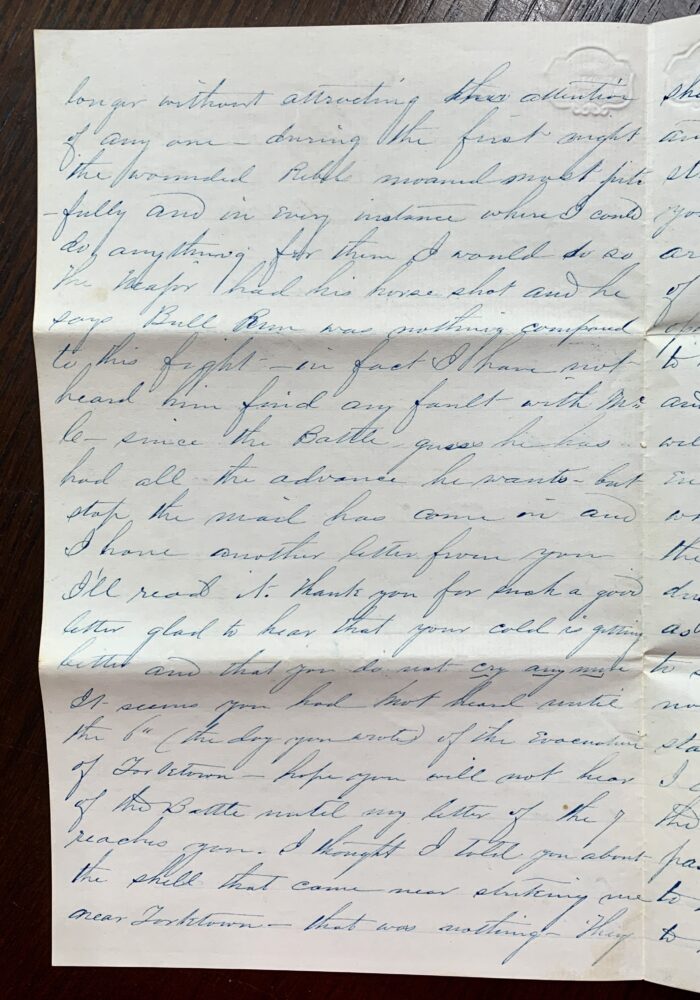 longer without attracting the attention
of any one - during the first night
the wounded Rebels moaned most piti
-fully and in every instance where I could
do anything for them I would do so
The Major had his horse shot and he
says Bull Run was nothing compared
to this fight - in fact I have not
heard him find any fault with Mc
le- since the Battle guess he has
had all the advance he wants - but
stop the mail has come in and
I have another letter from you
I'll read it. Thank you for such a good
letter glad to hear that your cold is getting
better and that you do not cry any more
It seems you had not heard until
the 6" (the day you wrote) of the Evacuation
of Yorktown - hope you will not hear
of the Battle until my letter of the 7
reaches you. I thought I told you about
the shell that came near striking me
near Yorktown - that was nothing - They